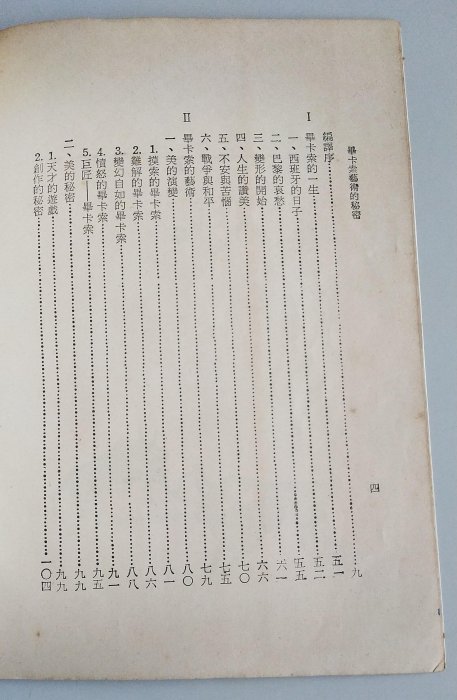 畢卡索藝術的秘密
四
編譯序……九
Ⅰ 畢卡索的一生……五一
一、西班牙的日子……五二
二、巴黎的哀愁……五五
三、變形的開始……六一
四、人生的讚美……六六
五、不安與苦惱……七〇
六、戰爭與和平……七五
Ⅱ 畢卡索的藝術……七九
一、美的演變……八〇
1.摸索的畢卡索……八一
2.難解的畢卡索……八六
3.變幻自如的畢卡索……八八
4.憤怒的畢卡索……九一
5.巨匠—畢卡索……九五
二、美的秘密……九九
1.天才的遊戲……九九
2.創作的秘密……一〇四